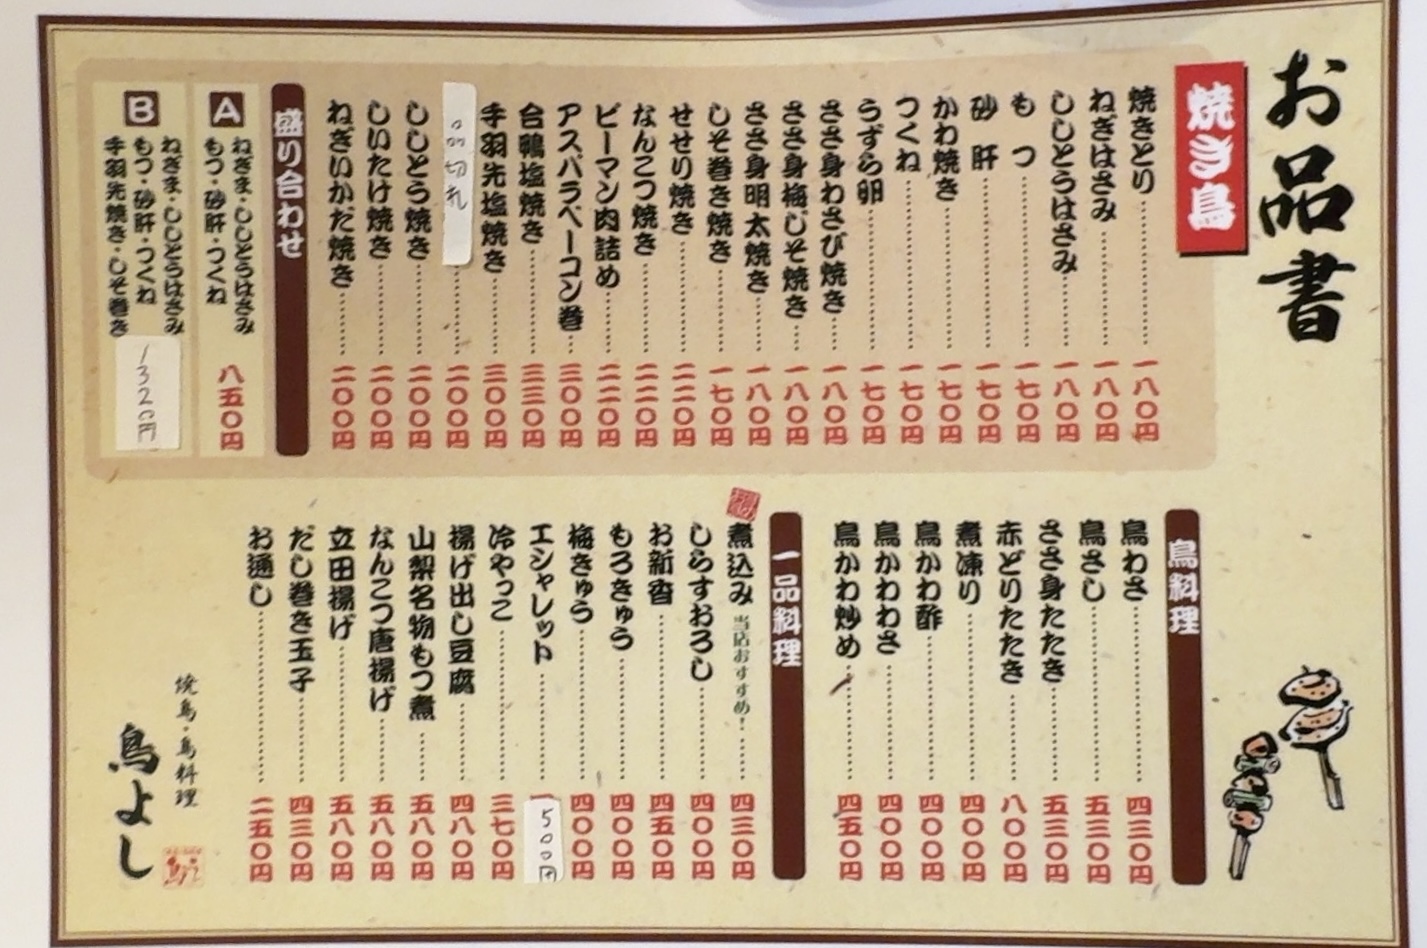 お品書
焼き鳥
焼きとり 一八〇円
ねぎはさみ 一八〇円
ししとうはさみ 一八〇円
もつ 一七〇円
砂肝 一七〇円
かわ焼き 一七〇円
つくね 一七〇円
うずら卵 一七〇円
ささ身わさび焼き 一八〇円
ささ身梅じそ焼き 一八〇円
ささ身明太焼き 一八〇円
しそ巻き焼き 一七〇円
せせり焼き 二二〇円
なんこつ焼き 二二〇円
ピーマン肉詰め 二二〇円
アスパラベーコン巻 三〇〇円
合鴨塩焼き 三三〇円
手羽先塩焼き 三〇〇円
品切れ 二〇〇円
ししとう焼き 二〇〇円
しいたけ焼き 二〇〇円
ねぎいかだ焼き 二〇〇円
盛り合わせ
A
ねぎま・ししとうはさみ
もつ・砂肝・つくね
八五〇円
B
ねぎま・ししとうはさみ
もつ・砂肝・つくね
手羽先焼き・しそ巻き
1320円
鳥料理
鳥わさ 四三〇円
鳥さし 五三〇円
ささ身たたき 五三〇円
赤どりたたき 八〇〇円
煮凍り 四〇〇円
鳥かわ酢 四〇〇円
鳥かわわさ 四〇〇円
鳥かわ炒め 四五〇円
一品料理
煮込み 当店おすすめ! 四三〇円
しらすおろし 四〇〇円
お新香 四五〇円
もろきゅう 四〇〇円
梅きゅう 四〇〇円
エシャレット 500円
冷やっこ 三七〇円
揚げ出し豆腐 四八〇円
山梨名物もつ煮 五八〇円
なんこつ唐揚げ 五八〇円
立田揚げ 五八〇円
だし巻き玉子 四三〇円
お通し 二五〇円
焼鳥・鳥料理
鳥よし